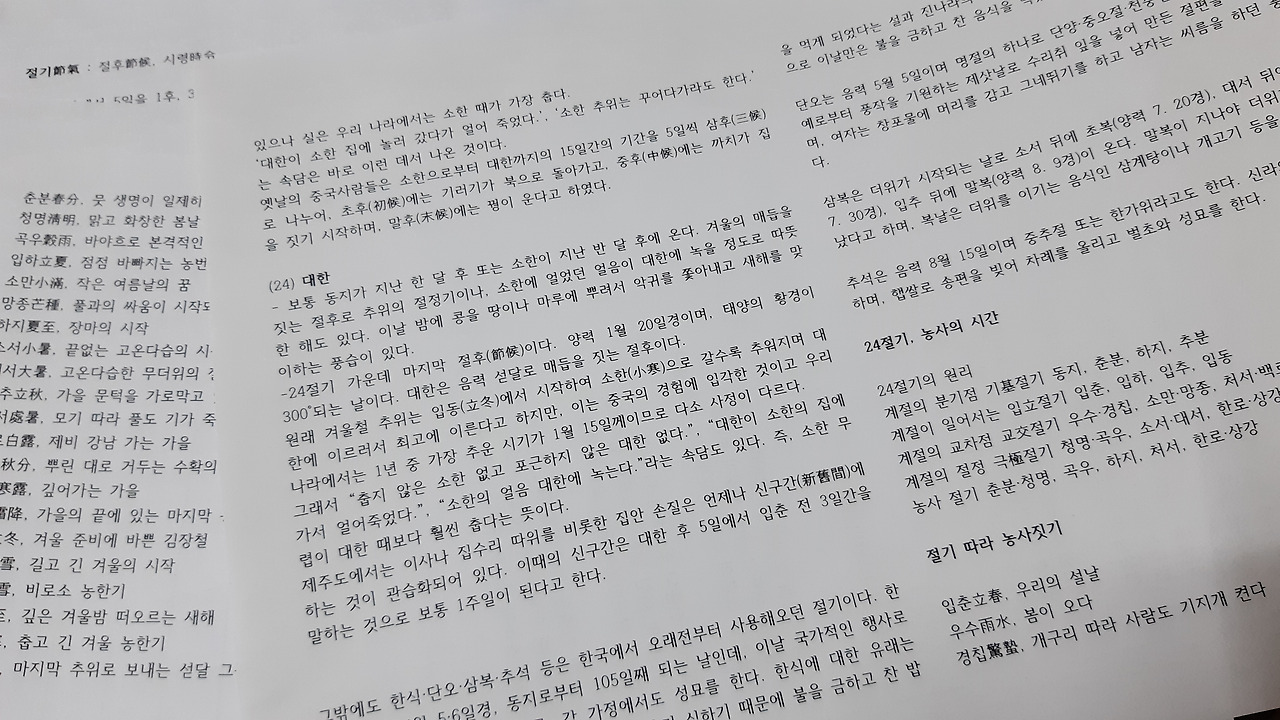 절기節氣 : 절후節候, 시령時令
5일을 1후, 3
춘분春分, 뭇 생명이 일제히
청명淸明, 맑고 화창한 봄날
곡우穀雨, 바야흐로 본격적인
입하立夏, 점점 바빠지는 농번
소만小滿, 작은 여름날의 꿈
망종芒種, 풀과의 싸움이 시작되
하지夏至, 장마의 시작
소서小暑, 끝없는 고온다습의 시
대서大暑, 고온다습한 무더위의
추立秋, 가을 문턱을 가로막고
서處暑, 모기 따라 풀도 기가 죽
白露, 제비 강남 가는 가을
秋分, 뿌린 대로 거두는 수확의
寒露, 깊어가는 가을
霜降, 가을의 끝에 있는 마지막
冬, 겨울 준비에 바쁜 김장철
雪, 길고 긴 겨울의 시작
雪, 비로소 농한기
깊은 겨울밤 떠오르는 새해
춥고 긴 겨울 농한기
마지막 추위로 보내는 섣달 그
있으나 실은 우리 나라에서는 소한 때가 가장 춥다.
'대한이 소한 집에 놀러 갔다가 얼어 죽었다.', '소한 추위는 꾸어다가라도 한다.'
는 속담은 바로 이런 데서 나온 것이다.
옛날의 중국사람들은 소한으로부터 대한까지의 15일간의 기간을 5일씩 삼후(三候)
로 나누어, 초후(初候)에는 기러기가 북으로 돌아가고, 중후(中候)에는 까치가 집
을 짓기 시작하며, 말후(末候)에는 꿩이 운다고 하였다.
(24) 대한
- 보통 동지가 지난 한 달 후 또는 소한이 지난 반 달 후에 온다. 겨울의 매듭을
짓는 절후로 추위의 절정기이나, 소한에 얼었던 얼음이 대한에 녹을 정도로 따뜻
한 해도 있다. 이날 밤에 콩을 땅이나 마루에 뿌려서 악귀를 쫓아내고 새해를 맞
이하는 풍습이 있다.
-24절기 가운데 마지막 절후(節候)이다. 양력 1월 20일경이며, 태양의 황경이
300°되는 날이다. 대한은 음력 섣달로 매듭을 짓는 절후이다.
원래 겨울철 추위는 입동(立冬)에서 시작하여 소한(小寒)으로 갈수록 추워지며 대
한에 이르러서 최고에 이른다고 하지만, 이는 중국의 경험에 입각한 것이고 우리
나라에서는 1년 중 가장 추운 시기가 1월 15일께이므로 다소 사정이 다르다.
그래서 "춥지 않은 소한 없고 포근하지 않은 대한 없다.", "대한이 소한의 집에
가서 얼어죽었다.", "소한의 얼음 대한에 녹는다."라는 속담도 있다. 즉, 소한 무
렵이 대한 때보다 훨씬 춥다는 뜻이다.
제주도에서는 이사나 집수리 따위를 비롯한 집안 손질은 언제나 신구간(新舊間)에
하는 것이 관습화되어 있다. 이때의 신구간은 대한 후 5일에서 입춘 전 3일간을
말하는 것으로 보통 1주일이 된다고 한다.
그밖에도 한식·단오·삼복·추석 등은 한국에서 오래전부터 사용해오던 절기이다. 한
5·6일경, 동지로부터 105일째 되는 날인데, 이날 국가적인 행사로
각 가정에서도 성묘를 한다. 한식에 대한 유래는
심하기 때문에 불을 금하고 찬 밥
을 먹게 되었다는 설과 진나라의
으로 이날만은 불을 금하고 찬 음식을
단오는 음력 5월 5일이며 명절의 하나로 단양·중오절·천중
예로부터 풍작을 기원하는 제삿날로 수리취 잎을 넣어 만든 절편을
며, 여자는 창포물에 머리를 감고 그네뛰기를 하고 남자는 씨름을 하던
다.
삼복은 더위가 시작되는 날로 소서 뒤에 초복(양력 7. 20경), 대서 뒤에
7. 30경), 입추 뒤에 말복(양력 8. 9경)이 온다. 말복이 지나야 더위
났다고 하며, 복날은 더위를 이기는 음식인 삼계탕이나 개고기 등을
추석은 음력 8월 15일이며 중추절 또는 한가위라고도 한다. 신라
하며, 햅쌀로 송편을 빚어 차례를 올리고 벌초와 성묘를 한다.
24절기, 농사의 시간
24절기의 원리
계절의 분기점 기基절기 동지, 춘분, 하지, 추분
계절이 일어서는 입立절기 입춘, 입하, 입추, 입동
계절의 교차점 교交절기 우수·경칩, 소만·망종, 처서·백로
계절의 절정 극極절기 청명·곡우, 소서·대서, 한로·상강
농사 절기 춘분·청명, 곡우, 하지, 처서, 한로·상강
절기 따라 농사짓기
입춘立春, 우리의 설날
우수雨水, 봄이 오다
경칩驚蟄, 개구리 따라 사람도 기지개 켠다